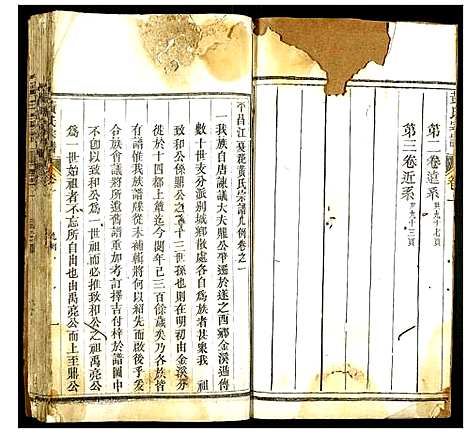 黃氏宗譜 卷一
第二卷遠系 共九十七頁
第三卷近系 共九十三頁
平昌江夏花黃氏宗譜凡例卷之一
一我族自唐諫議大夫鼎公平遷於遂之西鄉金溪遞傳
數十世支分派别城鄉散處各自爲族者甚衆我 祖
致和公係鼎公之二十三世孫也則在明初由金溪分
徙於十四都上鎮迄今閱年己三百餘歲矣乃各族皆
有譜惟我族譜牒從未補輯將何以紹先而啟後乎爰
合族會議將所遺舊譜重加考訂擇吉付梓於譜圖中
不曰以致和公爲一世祖而必推致和公之祖禹堯公
爲一世始祖者不忘所自出也由禹堯公而上至鼎公